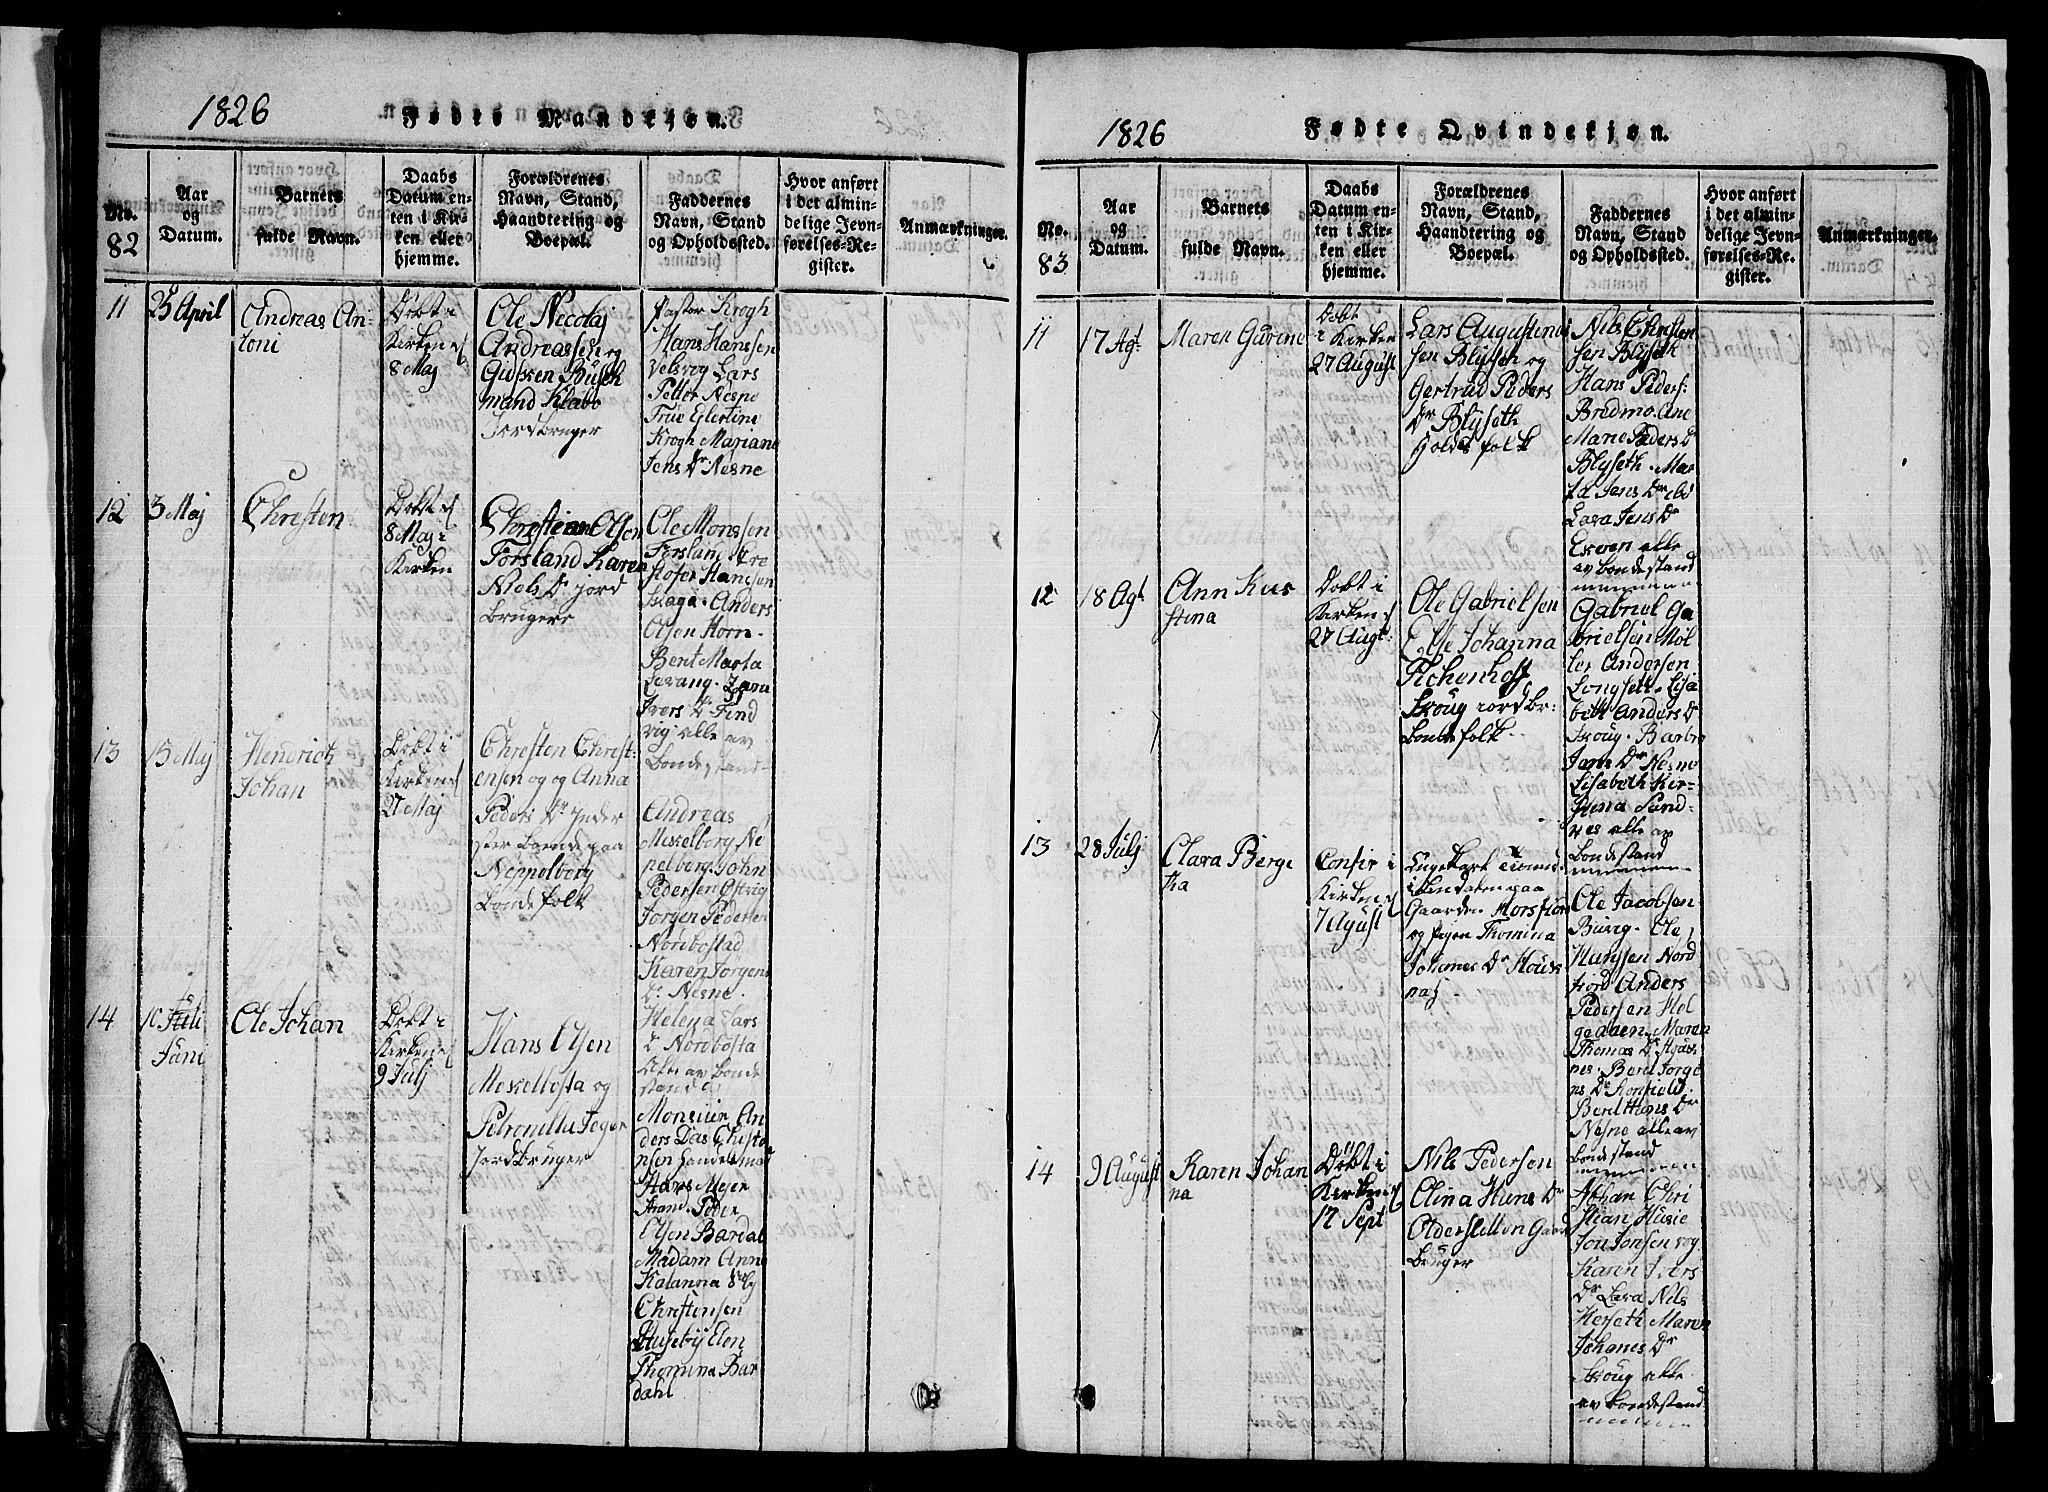 1826
Fødte Mandkjøn.
No.
82
Aar
og
Datum.
Barnets
fulde Navn.
Daabs
Datum en-
ten i Kir-
ken eller
hjemme.
Forældrenes
Navn, Stand,
Haandtering og
Boepæl.
Faddernes
Navn, Stand
og Opholdssted.
Hvor anført
i det almin-
delige Jevn-
førelses-Re-
gister.
Anmærkninger.
11
25 April
Andreas An-
toni
Døbt i
Kirken
8 Maj
Ole Necolaj
Andreassen og
Busch
mand Klabo
Jordbruger
Pastor Krogh
Hans Hanssen
Velsvog Lars
Petter Nesne
Frue Eylertine
Krogh Mariane
Jens Dr Nesne
12
3 Maj
Christen
Døbt
8 Maj i
Kirken
Christian Olsen
Forsland Karen
Niels Dr jord
Brugere
Ole Monssen
Forsland Kre
stofer Hansen
Haga. Anders
Olsen Horn.
Bent Marta
Levang. Lara
Ivers D Find
vig alle av
Bondestand
13
15 Maj
Hendrich
Johan
Døbt i
Kirken
27 Maj
Christen Christ-
ensen og og Anna
Peders Dr Inder
ster boende paa
Neppelberg
Bondefolk
Andreas
Meselberg Ne
pelberg. John
Pedersen Østvig
Jorgen Pedersen
Nordbostad
Karen Jorgens
Dr Nesne.
Helena Lars
Dr Nordbosta
alle av Bonde
stand
14
10 Juli
Juni
Ole Johan
Døbt i
Kirken
9 Julj
Hans Olsen
Meselbosta og
Petronilla Jeger
Jordbruger
Monsiür An
ders Das Christa
nsen Handelsmad
Hans Mejer
Strand. Peder
Olsen Bardal
Madam Anne
Katarina
Christensen
Huseby Elen
Thomina Bar
dahl
1826
Fødte Qvindekjøn.
No.
83
Aar
og
Datum.
Barnets
fulde Navn.
Daabs
Datum en-
ten i Kir-
ken eller
hjemme.
Forældrenes
Navn, Stand,
Haandtering og
Boepæl.
Faddernes
Navn, Stand
og Opholdssted.
Hvor anført
i det almin-
delige Jevn-
førelses-Re-
gister.
Anmærkninger.
11
17 Agt.
Maren Gurine
Døbt
i Kirken
27 August
Lars Augustinus
sen Blyseth og
Gertrud Peders
Dr Blyseth
Holdsfolk
Nils Christen
sen Blyseth
Hans Peders:
Bredmo. Ane
Marie Peders Dr
Blyseth. Mar
ta Jens Dr ibd
Lara Jens Dr
alle
av Bondestand
12
18 Agt
Ann Kris
stina
Døbt i
Kirken
27 Augt:
Ole Gabrielsen
Else Johanna
Fichenhoff
Skoug iordbr:
Bondefolk
Gabriel Ga
brielsen Møl
ler Andersen
Longsett. Lisa
bett Anders Dr
Skoug. Barbro
Jans Dr Nesne
Lisabeth Kir-
stena Sund-
nes alle av
Bondestand
13
28 Julj
Clara Berge
tha
Confir i
Kirken
7 Agust
paa
Gaarden
og Pigen Thomina
Johannes Dr Hous
naj.
Ole Jacobsen
Buvig. Ole
Hansen Nord
fiord Anders
Pedersen Hel
gaaen. Maren
Thomas Dr
nes. Berel Jorge
ns Dr
Berel Hans Dr
Nesne alle av
Bondestand
14
9 August
Karen Johan
na
Døbt i
Kirken
17 Sept
Nils Pedersen
Elina Hans Dr
Olderskletten Gaard
Bruger
Johan Chri
stian Husie
Jon Jonsen vog
Karen Ivers
Dr Lava Nils
Herseth Maren
Johanes Dr
Skoug alle
av Bondestand